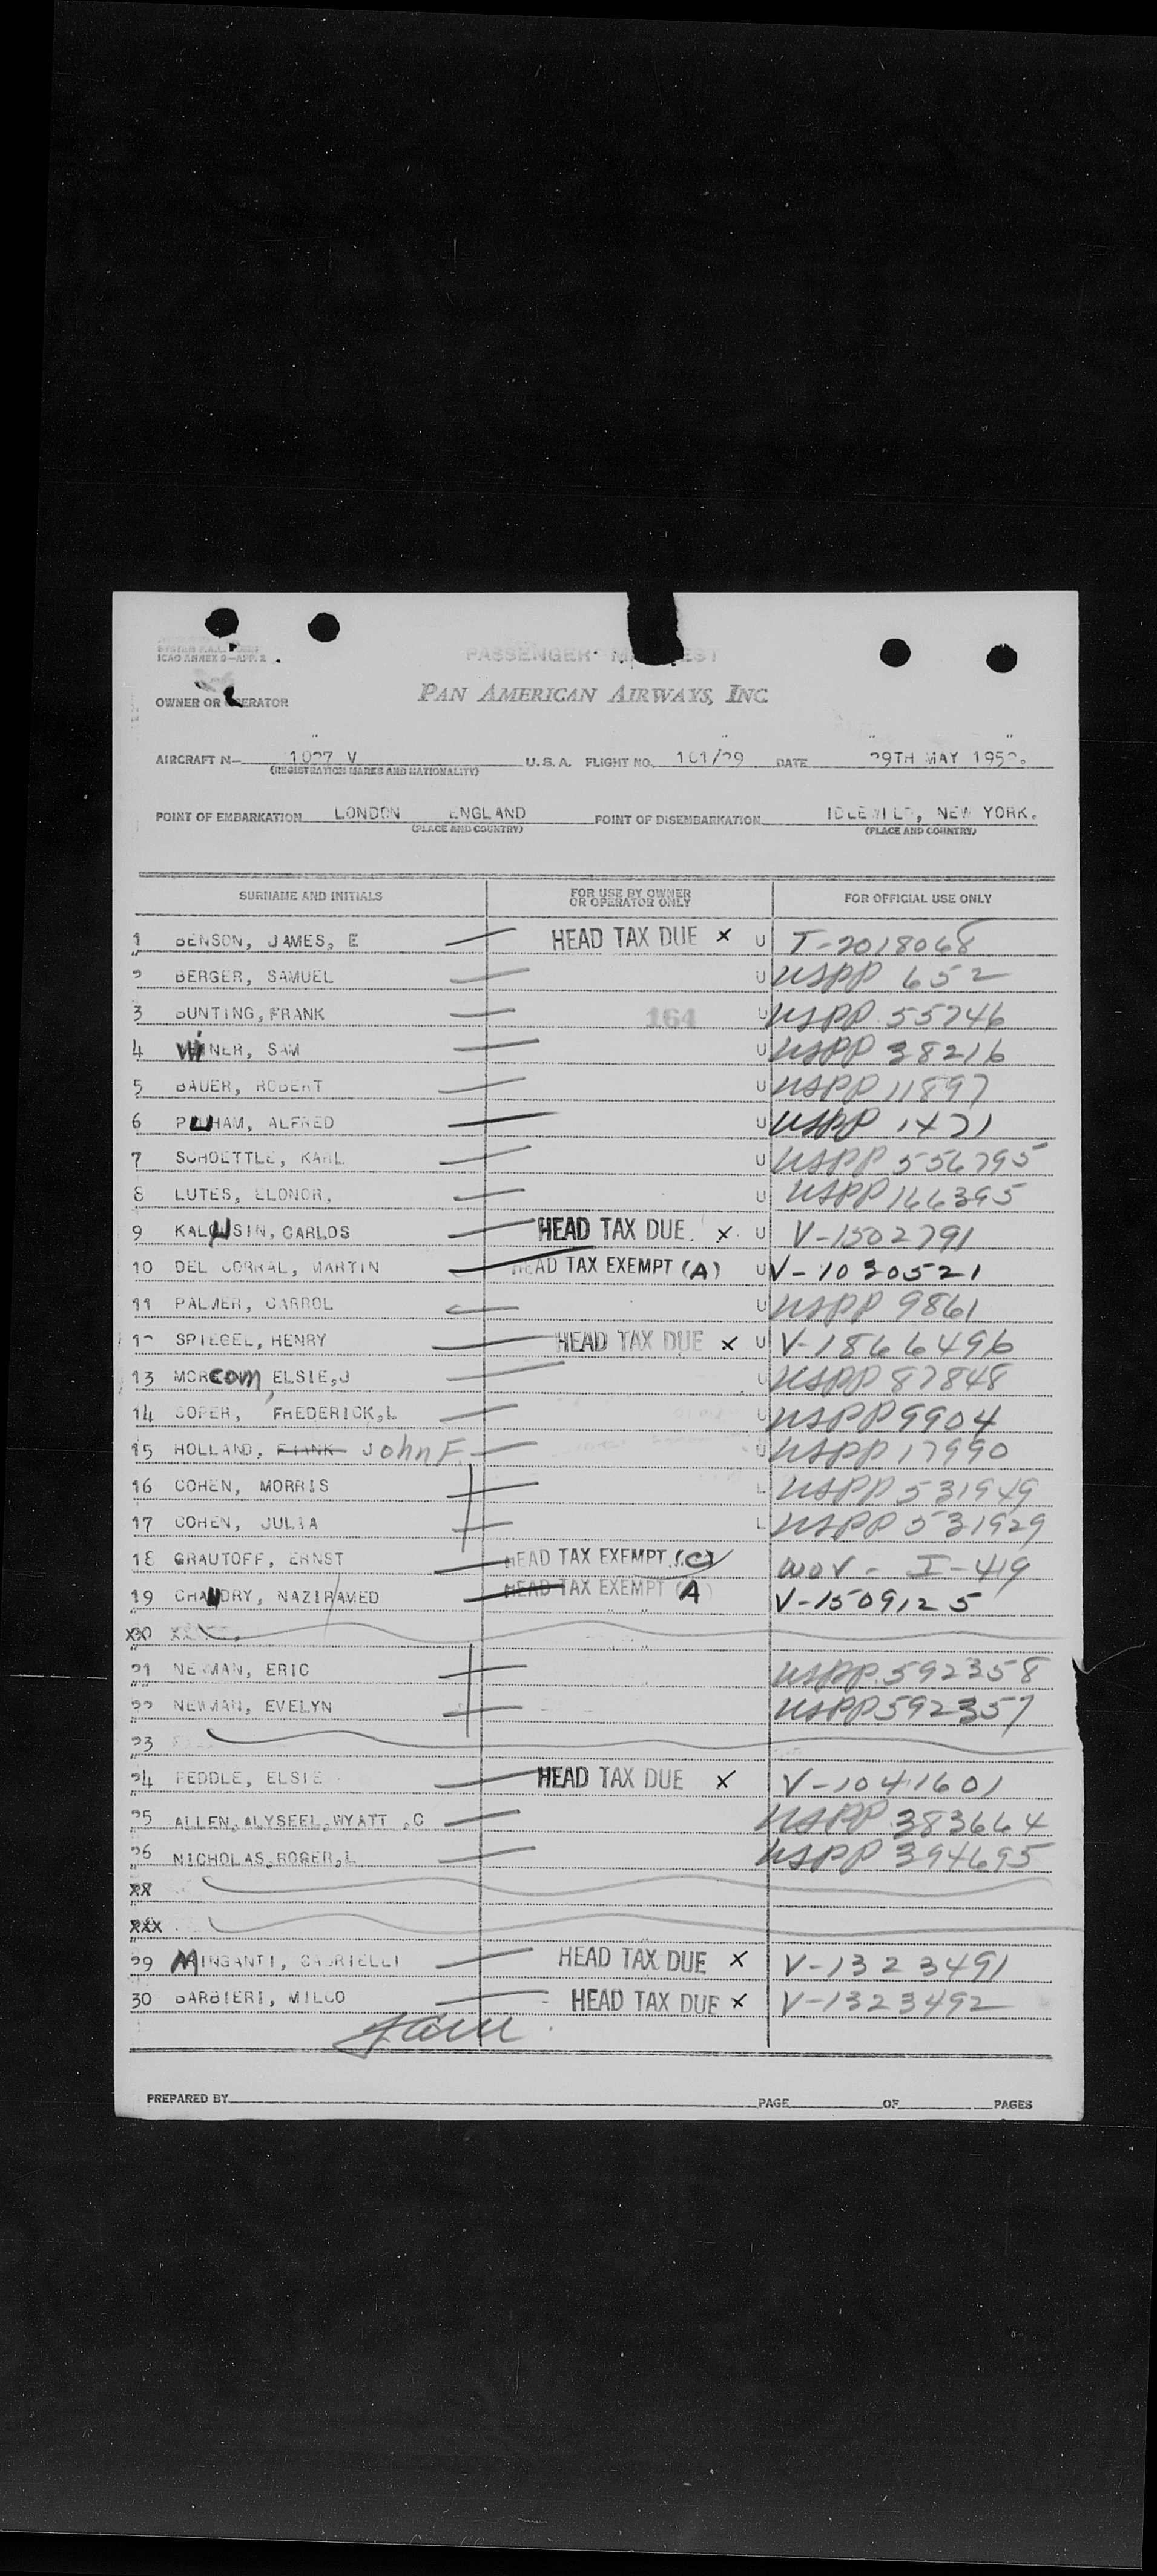 ICAO ANNEX 9—APP. 2
PASSENGER
OWNER OR OPERATOR
PAN AMERICAN AIRWAYS, INC.
AIRCRAFT N— 1027 V U.S.A. FLIGHT NO. 101/29 DATE 29TH MAY 1952.
(REGISTRATION MARKS AND NATIONALITY)
POINT OF EMBARKATION LONDON ENGLAND POINT OF DISEMBARKATION IDLEWILD, NEW YORK.
(PLACE AND COUNTRY) (PLACE AND COUNTRY)
SURNAME AND INITIALS FOR USE BY OWNER OR OPERATOR ONLY FOR OFFICIAL USE ONLY
1 BENSON, JAMES, E HEAD TAX DUE X U T-2018068
2 BERGER, SAMUEL U USPP 652
3 BUNTING, FRANK 164 U USPP 55746
4 WiNER, SAM U USPP 38216
5 BAUER, ROBERT U USPP 11897
6 ALFRED U USPP 1471
7 SCHOETTLE, KARL U USPP 556795
8 LUTES, ELONOR, U USPP 166395
9 CARLOS HEAD TAX DUE X U V-1502791
10 DEL CORRAL, MARTIN HEAD TAX EXEMPT (A) U V-1030521
11 PALMER, CARROL U USPP 9861
12 SPIEGEL, HENRY HEAD TAX DUE X U V-1866496
13 MORCOM, ELSIE, J U USPP 87848
14 SOPER, FREDERICK, L U USPP 9904
15 HOLLAND, FRANK John F. U USPP 17990
16 COHEN, MORRIS L USPP 531949
17 COHEN, JULIA L USPP 531929
18 GRAUTOFF, ERNST HEAD TAX EXEMPT (C) WOV - I-419
19 CHAUDRY, NAZIRAMED HEAD TAX EXEMPT (A) V-1509125
XX
21 NEWMAN, ERIC USPP 592358
22 NEWMAN, EVELYN USPP 592357
23
24 PEDDLE, ELSIE HEAD TAX DUE X V-1041601
25 ALLEN, ALYSEEL, WYATT ,C USPP 383664
26 NICHOLAS, ROGER, L USPP 394695
XX
XXX
29 MINGANTI, GABRIELLI HEAD TAX DUE X V-1323491
30 BARBIERI, MILCO HEAD TAX DUE X V-1323492
PREPARED BY PAGE OF PAGES